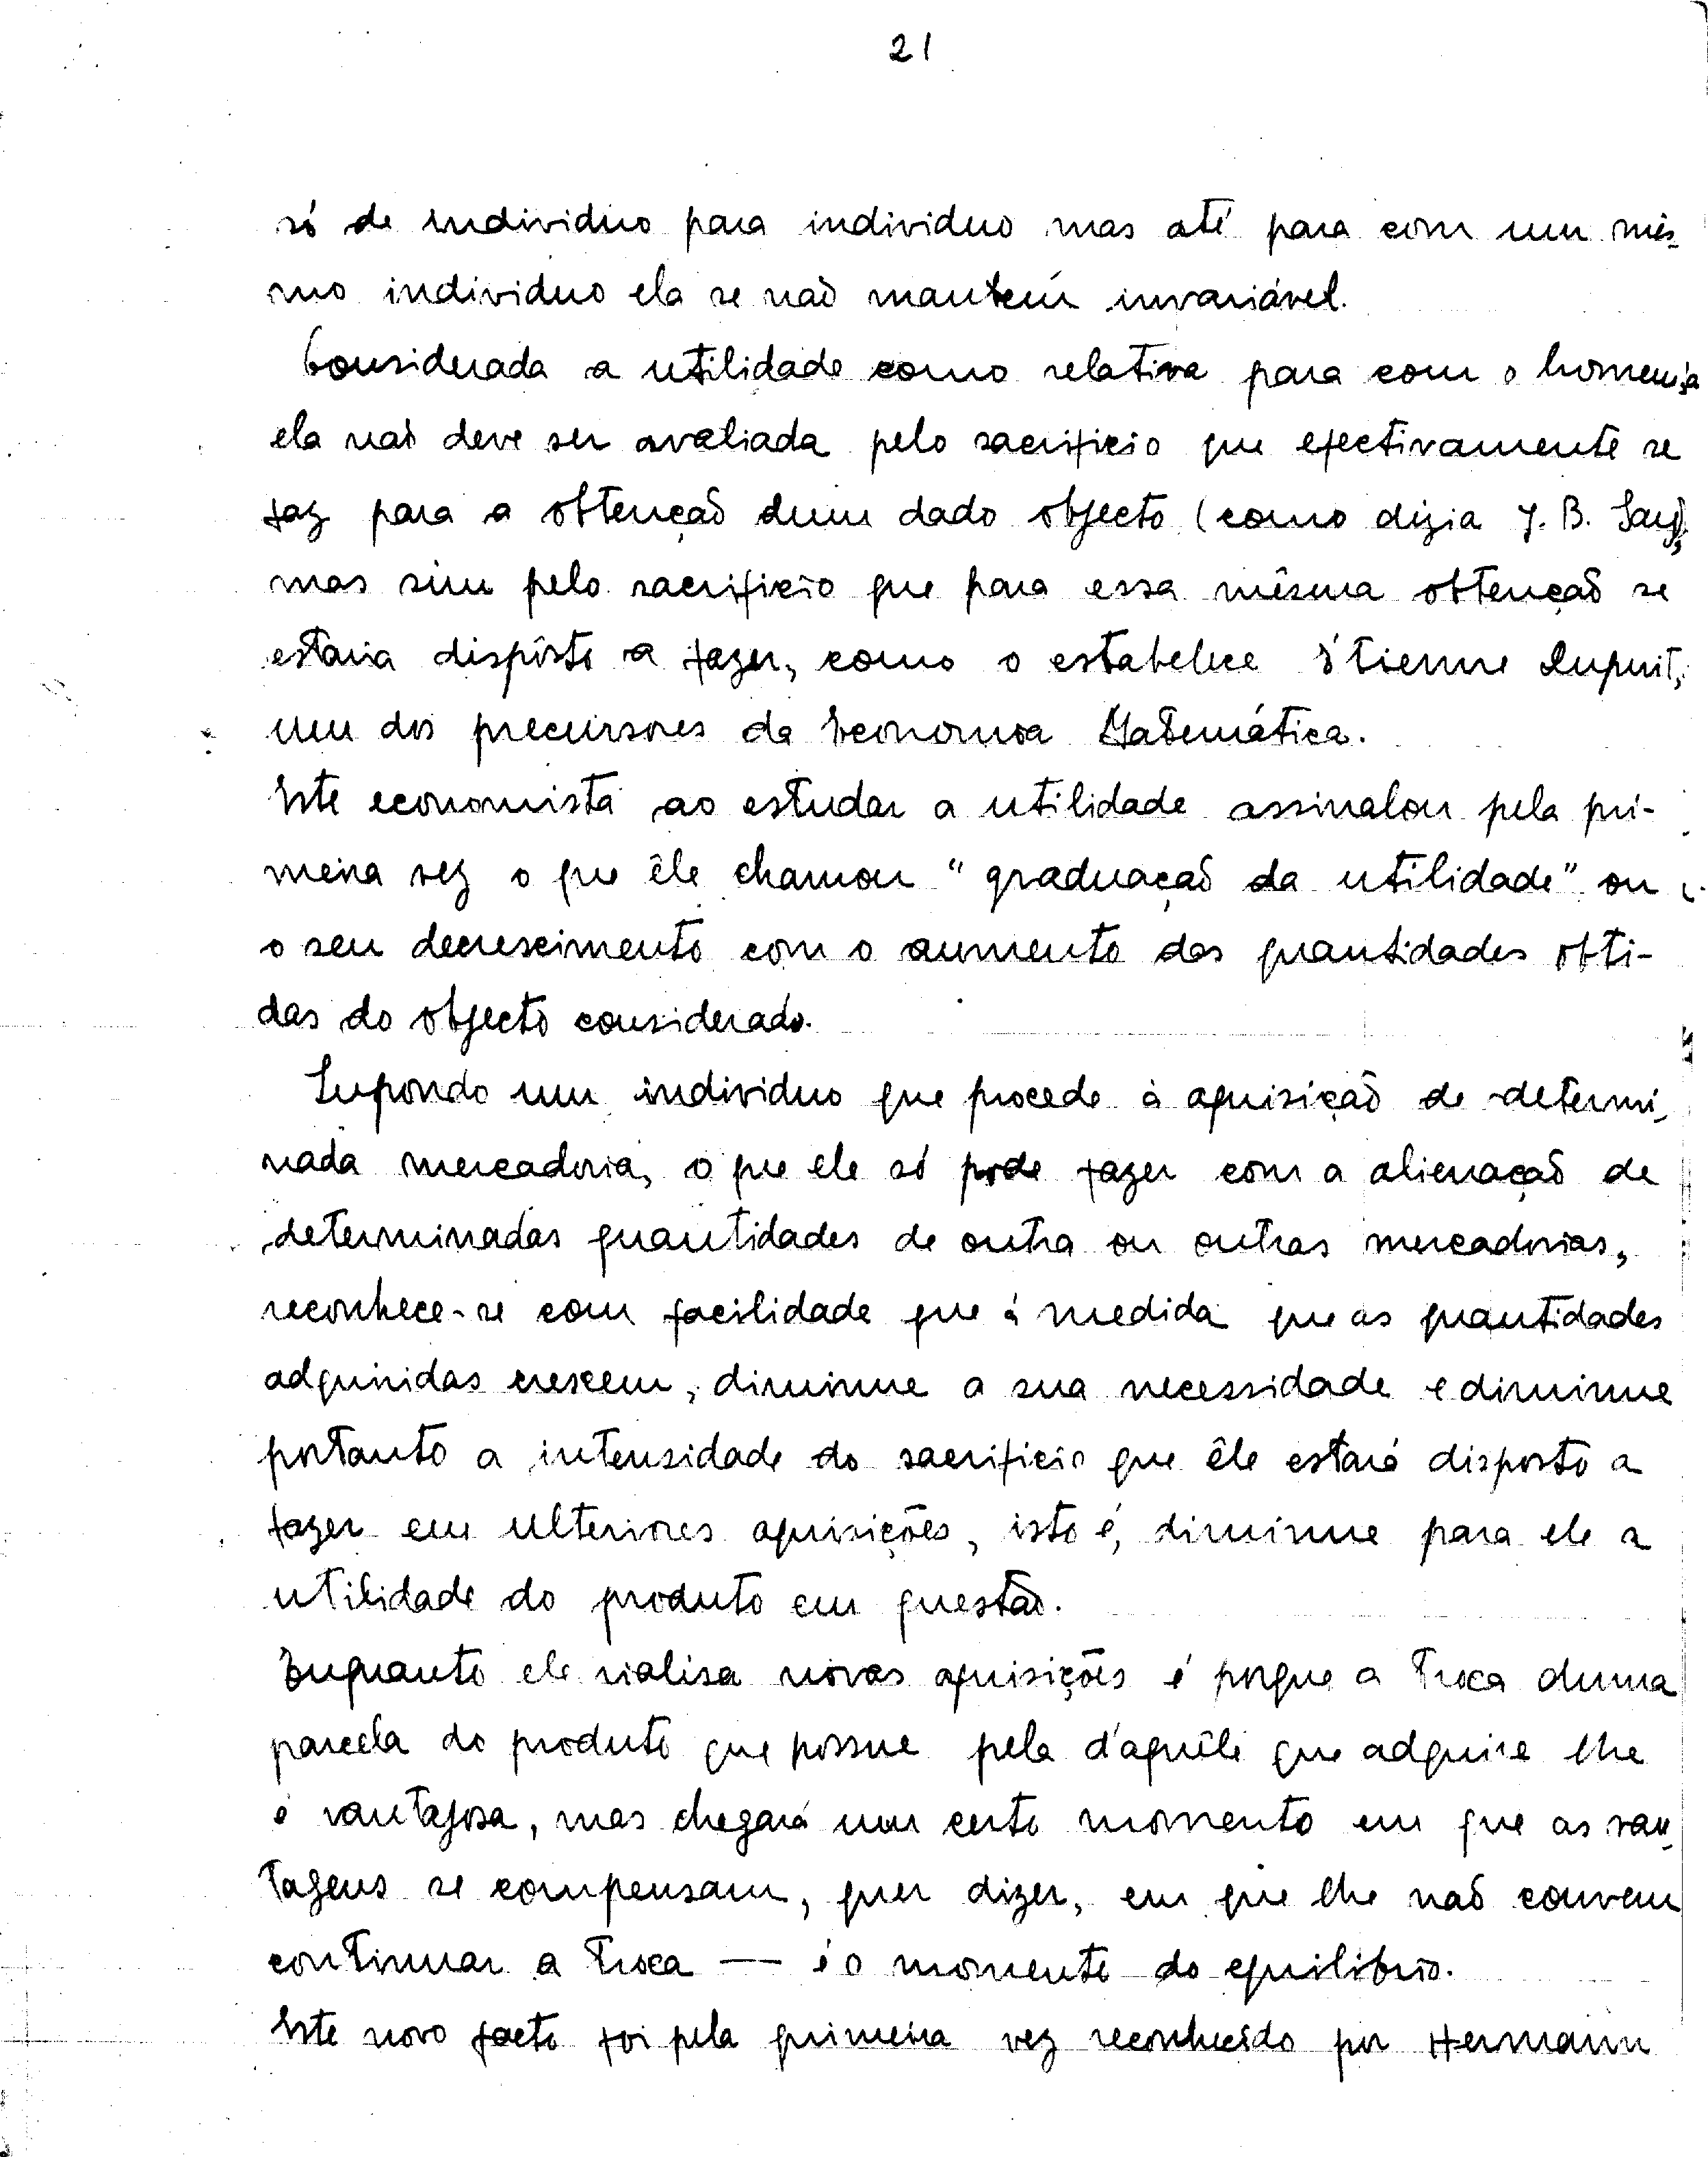 21
só de individuo para individuo mas até para com um mês-
mo individuo ela se não mantém invariável.
Considerada a utilidade como relativa para com o homem já
ela não deve ser avaliada pelo sacrificio que efectivamente se
faz para a obtenção dum dado objecto (como dizia J. B. Say),
mas sim pelo sacrificio que para essa mêsma obtenção se
estaria dispôsto a fazer, como o estabelece Étienne Dupuit,
um dos precursores da Economia Matemática.
Este economista ao estudar a utilidade assinalou pela pri-
meira vez o que êle chamou "graduação da utilidade" ou
o seu decrescimento com o aumento das quantidades obti-
das do objecto considerado.
Supondo um individuo que procede à aquisição de determi-
nada mercadoria, o que ele só pode fazer com a alienação de
determinadas quantidades de outra ou outras mercadorias,
reconhece-se com facilidade que á medida que as quantidades
adquiridas crescem, diminue a sua necessidade e diminue
portanto a intensidade do sacrificio que êle estará disposto a
fazer em ulteriores aquisições, isto é, diminue para ele a
utilidade do produto em questão.
Enquanto ele rialisa novas aquisições é porque a troca duma
parcela do produto que possue pela d'aquêle que adquire lhe
é vantajosa, mas chegará um certo momento em que as van-
tagens se compensam, quer dizer, em que lhe não convem
continuar a troca — é o momento do equilibrio.
Este novo facto foi pela primeira vez reconhecido por Hermann